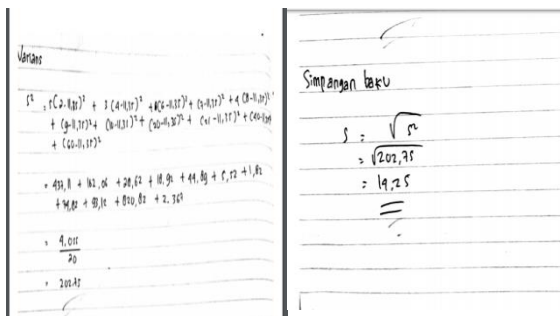 Varians
S² = 5(2-11,35)² + 3(4-11,35)² + (6-11,35)² + (7-11,35)² + 4(8-11,35)²
+ (9-11,35)² + (10-11,35)² + (20-11,35)² + (21-11,35)² + (40-11,35)
+ (60-11,35)²
= 437,11 + 162,06 + 28,62 + 18,92 + 44,89 + 5,52 + 1,82
+ 74,82 + 93,12 + 820,82 + 2.367
= 4,055
20
= 202.75
Simpangan baku
S = √s²
= √202,75
= 14,25